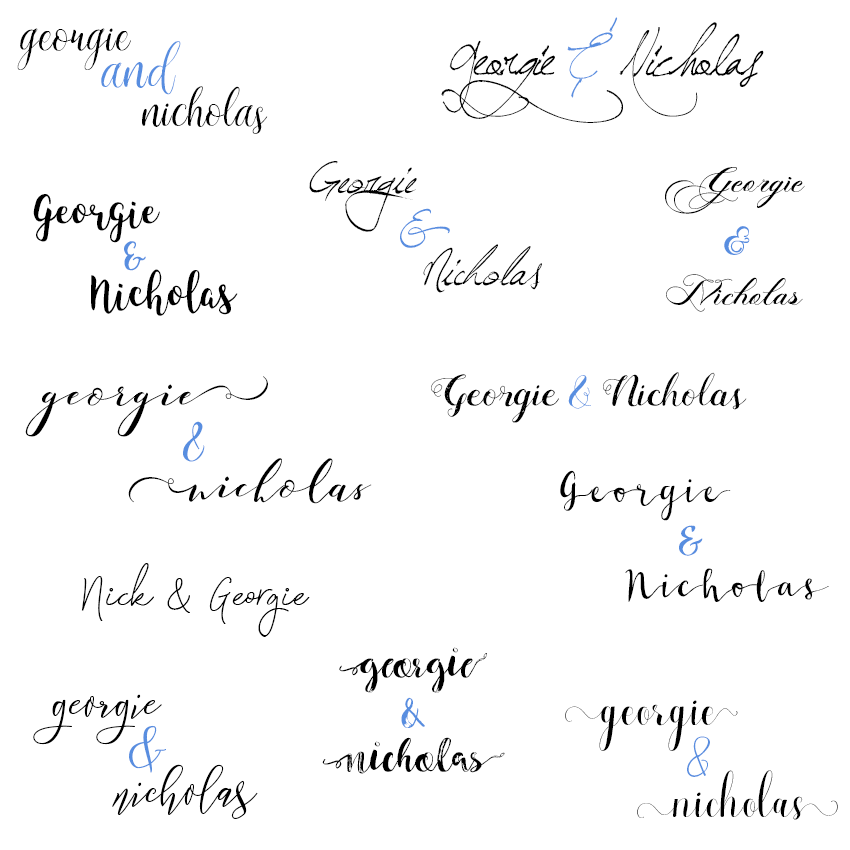 georgie
and
nicholas
Georgie & Nicholas
Georgie
&
Nicholas
Georgie
&
Nicholas
Georgie
&
Nicholas
georgie
&
nicholas
Georgie & Nicholas
Georgie
&
Nicholas
Nick & Georgie
georgie
&
nicholas
georgie
&
nicholas
georgie
&
nicholas